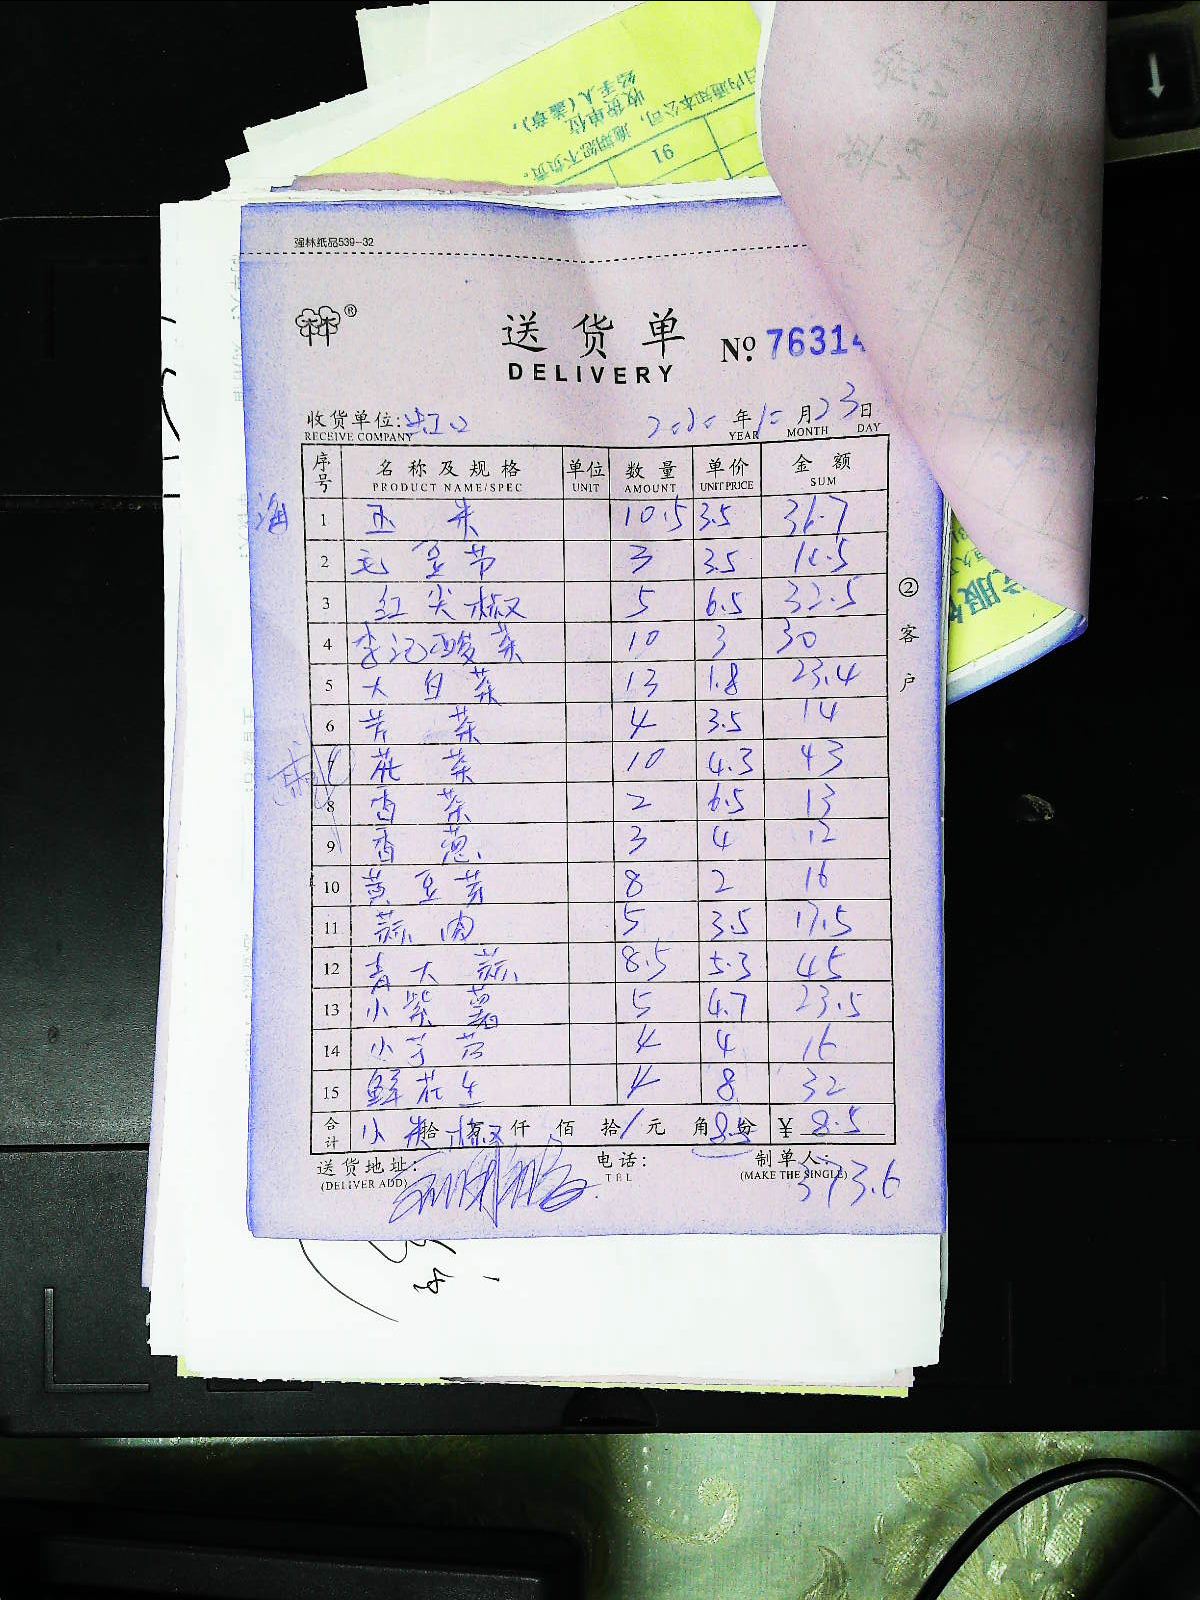 强林纸品539-32
送货单
DELIVERY
No. 76314
收货单位:虹口 2020年10月23日
RECEIVE COMPANY YEAR MONTH DAY
序号 名称及规格 单位 数量 单价 金额
PRODUCT NAME/SPEC UNIT AMOUNT UNIT PRICE SUM
1 玉米 10.5 3.5 36.7
2 毛豆节 3 3.5 10.5
3 红尖椒 5 6.5 32.5
4 李记酸菜 10 3 30
5 大白菜 13 1.8 23.4
6 芹菜 4 3.5 14
7 花菜 10 4.3 43
8 香菜 2 6.5 13
9 香葱 3 4 12
10 黄豆芽 8 2 16
11 蒜肉 5 3.5 17.5
12 青大蒜 8.5 5.3 45
13 小紫薯 5 4.7 23.5
14 小芋艿 4 4 16
15 鲜花生 4 8 32
合计 小米椒 拾 万 仟 佰 拾 1 元 角 8.5 分 ¥ 8.5
送货地址: 电话: 制单人:
(DELIVER ADD) TEL (MAKE THE SINGLE)
373.6
②客户
海
收货单位
经手人(盖章):
日内通知本公司,逾期恕不负责。
16